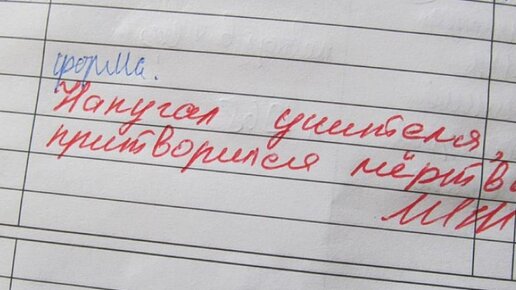 форма.
Напугал учителя,
притворился мёртв